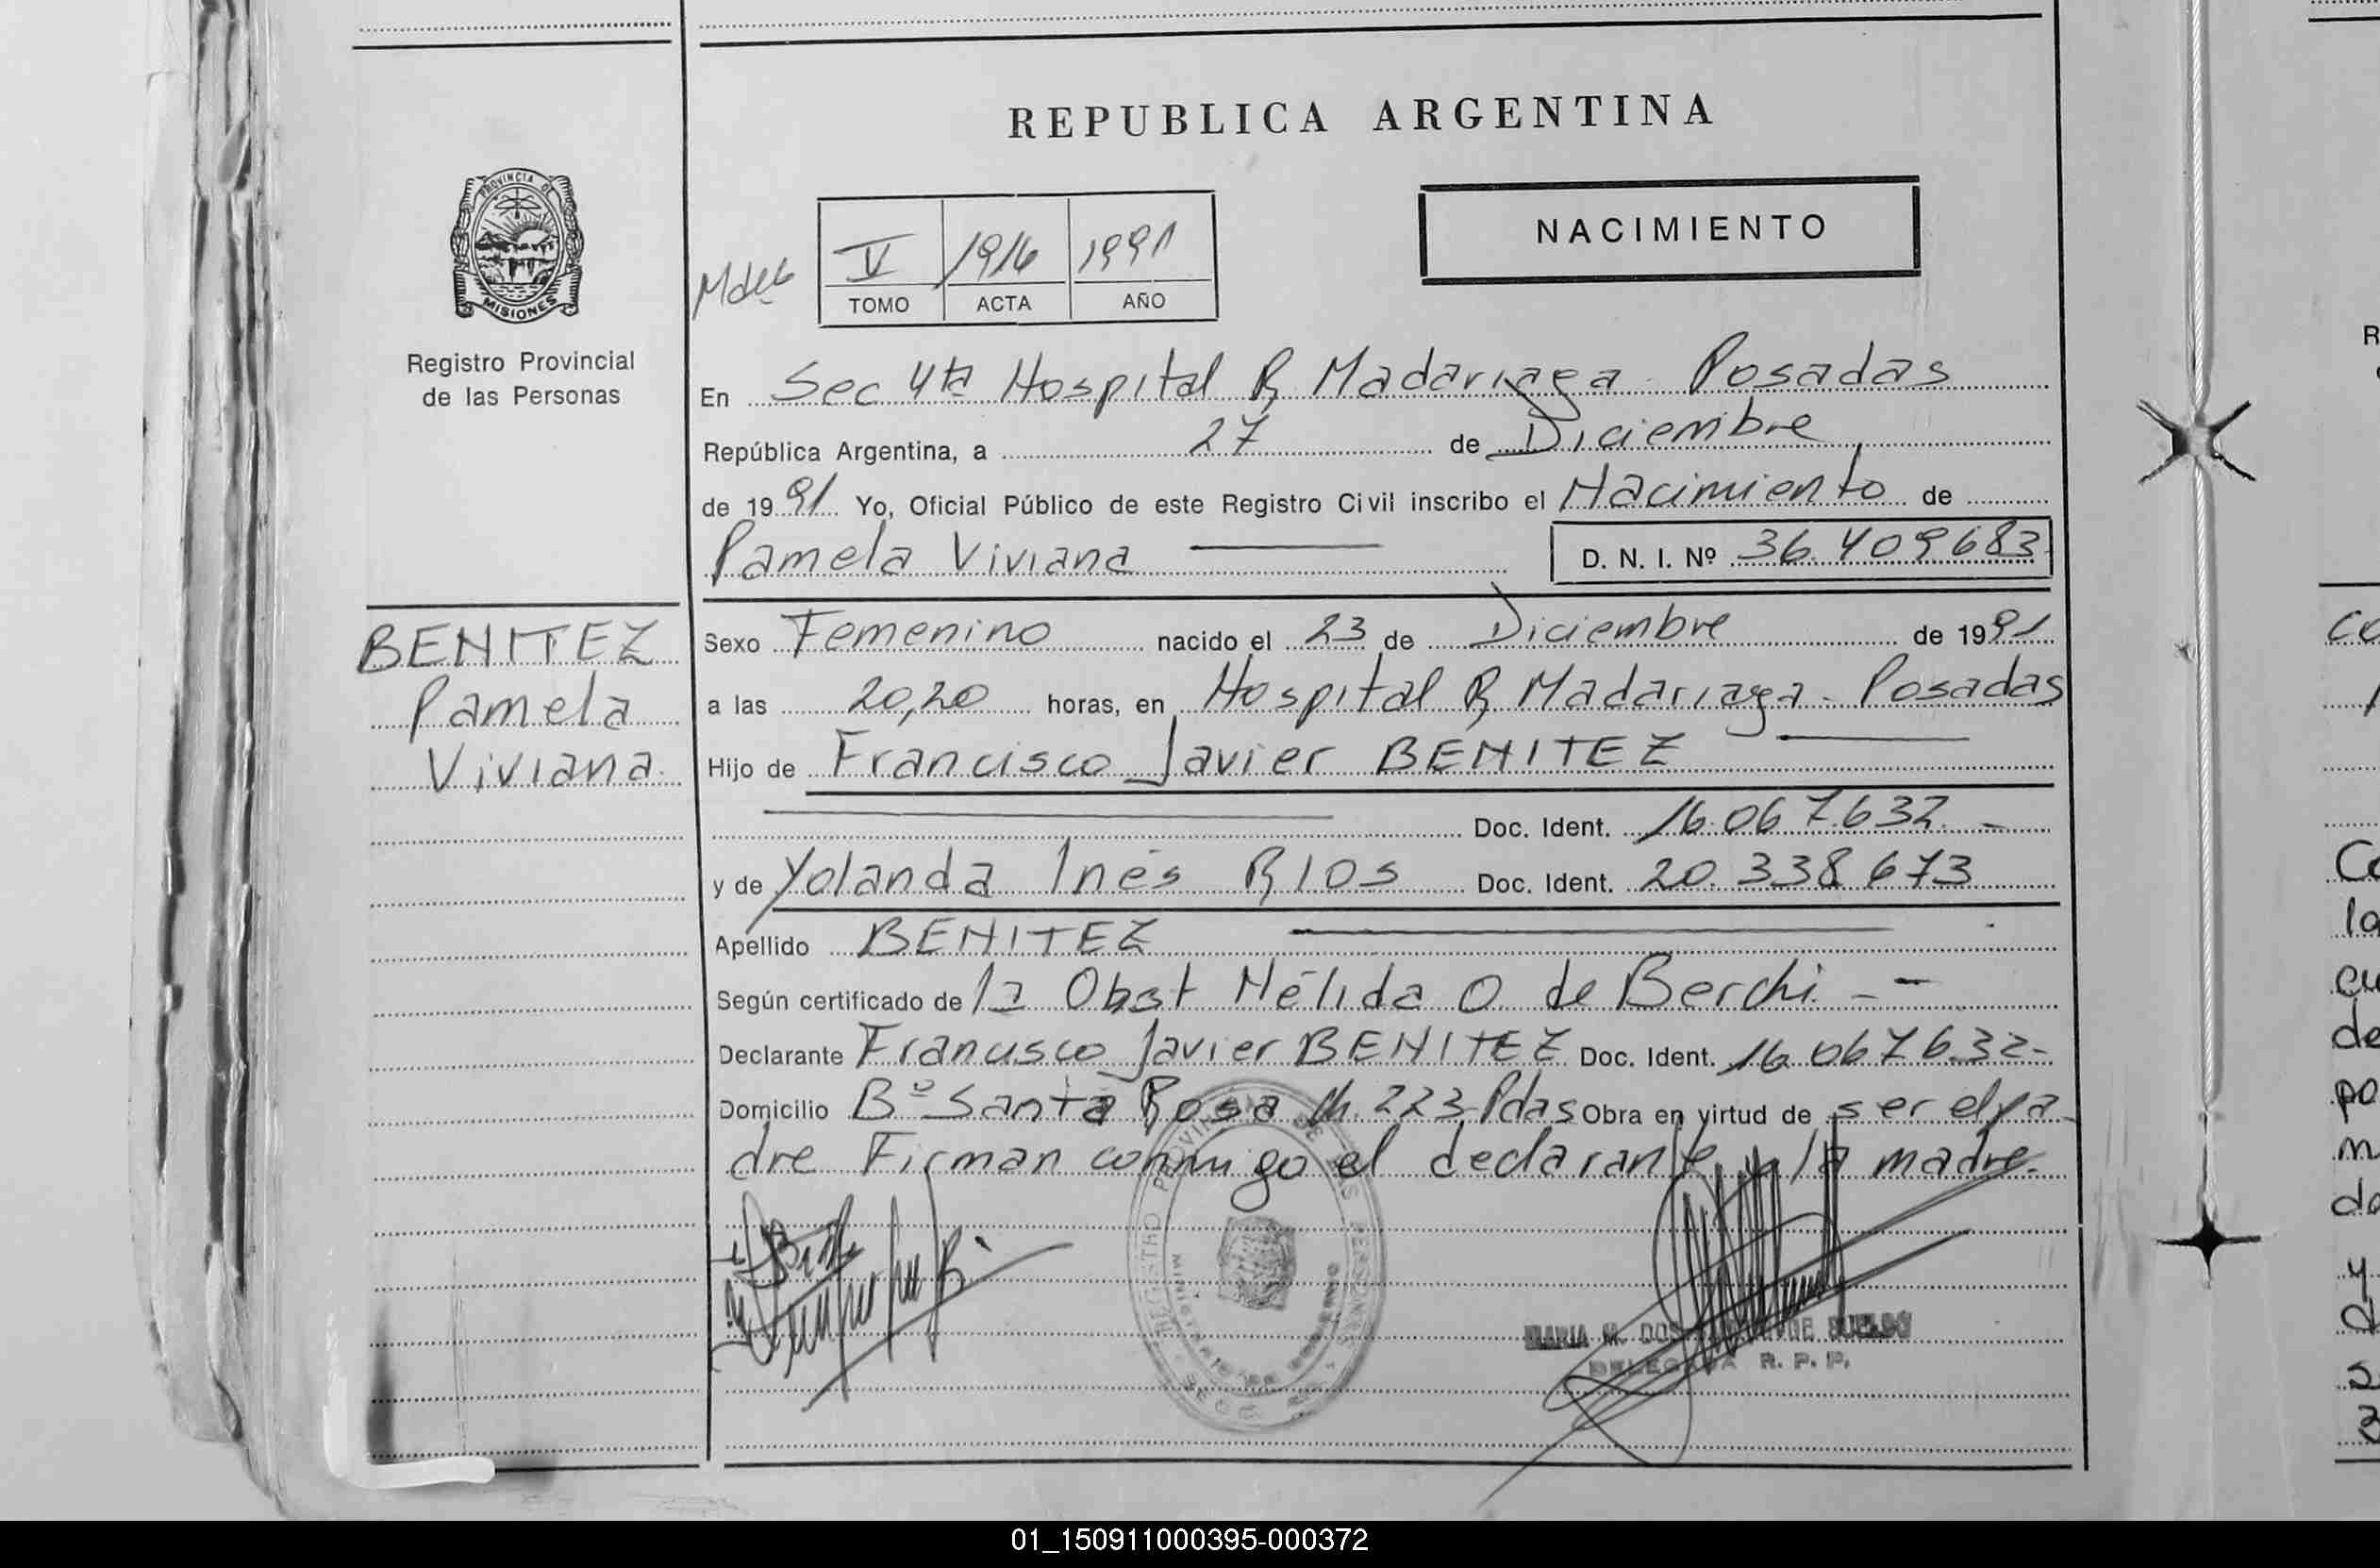 REPUBLICA ARGENTINA
PROVINCIA DE MISIONES
Registro Provincial
de las Personas
NACIMIENTO
V 1916 1991
TOMO ACTA AÑO
En Sec 4ta Hospital R Madariaga Posadas
República Argentina, a 27 de Diciembre
de 1991 Yo, Oficial Público de este Registro Civil inscribo el Nacimiento de
Pamela Viviana D. N. I. Nº 36.409683
BENITEZ
Pamela
Viviana
Sexo Femenino nacido el 23 de Diciembre de 1991
a las 20,20 horas, en Hospital R Madariaga - Posadas
Hijo de Francisco Javier BENITEZ
Doc. Ident. 16.067.632 -
y de Yolanda Inés RIOS Doc. Ident. 20.338673
Apellido BENITEZ
Según certificado de la Obst Nélida O de Berchi - -
Declarante Francisco Javier BENITEZ Doc. Ident. 16.067632-
Domicilio Bº Santa Rosa Ch. 223-Pdas Obra en virtud de ser el pa
dre Firman conmigo el declarante y la madre.
MARIA M. DOS
DELEGADA R. P. P.
01_150911000395-000372